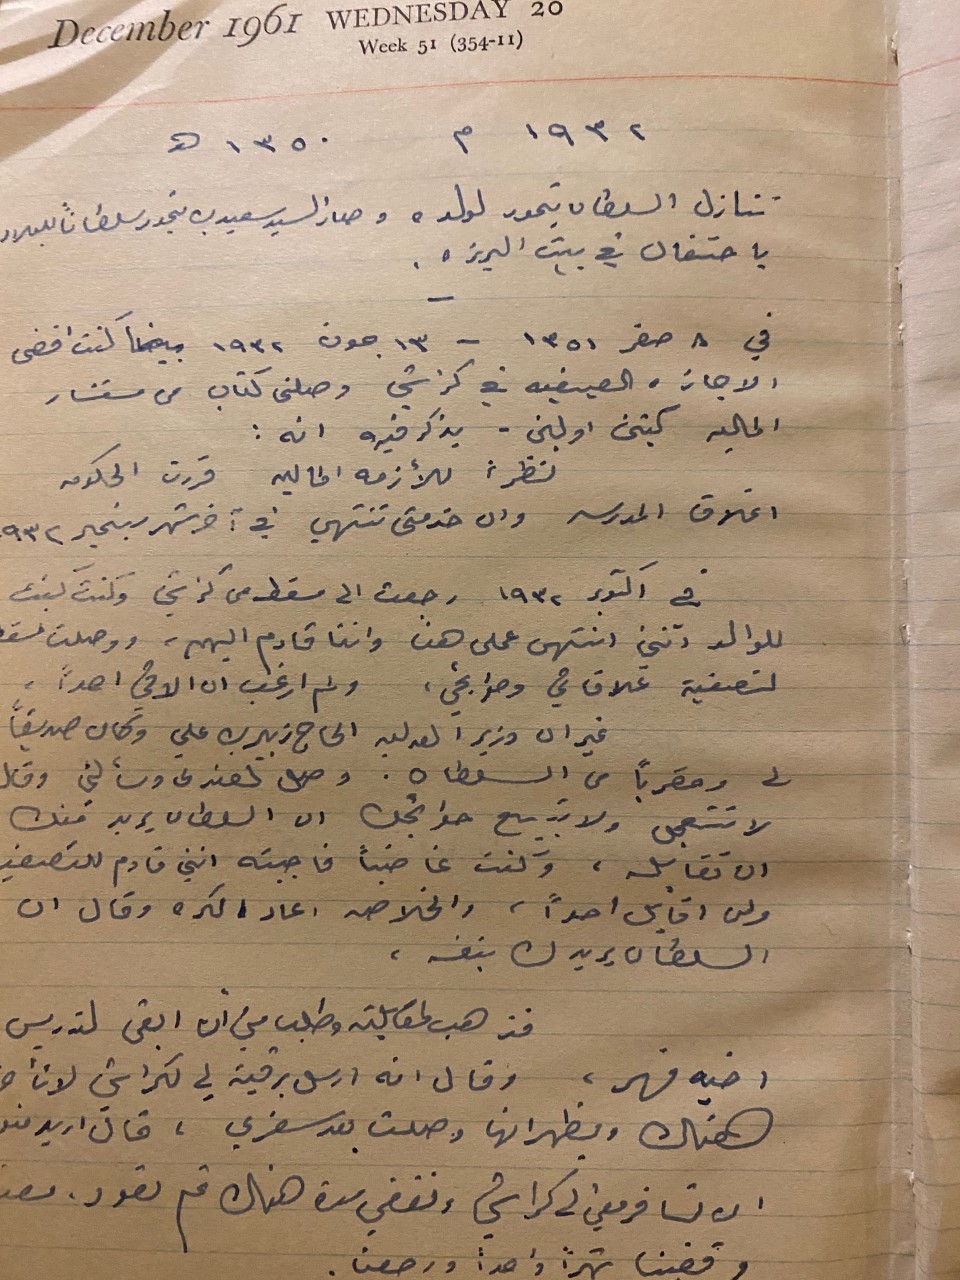 December 1961 WEDNESDAY 20
Week 51 (354-11)
١٩٣٢ م ١٣٥٠ هـ
تنازل السلطان تيمور لولده وصار السيد سعيد بن تيمور سلطاناً للبلاد
باحتفال في بيت البرزه .
في ٨ صفر ١٣٥١ – ١٣ جون ١٩٣٢ بينما كنت اقضي
الاجازه الصيفيه في كراتشي وصلني كتاب من مستشار
الماليه كبتن اولبن - يذكر فيه انه :
نظراً للأزمه الماليه قررت الحكومه
اغلاق المدرسه وان خدمتي تنتهي في آخر شهر سبتمبر ١٩٣٢
في اكتوبر ١٩٣٢ رجعت الى مسقط من كراتشي وكنت كتبت
للوالد انني انتهى عملي هنا وانا قادم اليهم ، ووصلت مسقط
لتصفية علاقاتي وحوائجي ، ولم ارغب ان الاقي احداً ،
غير ان وزير العدليه الحاج زبير بن علي وكان صديقاً
لي ومقرباً من السلطان . وصل لعندي وسألني وقال
لا تستعجل ولا تبيع حوائجك ان السلطان يريد منك
ان تقابله ، وكنت غاضباً فاجبته انني قادم للتصفيه
ولن اقابل احداً ، والخلاصه اعاد الكره وقال ان
السلطان يريدك بنفسه ،
فذهبت لمقابلته وطلب مني أن ابقى لتدريس
اخيه فهر ، وقال انه ارسل برقية لي لكراتشي لاتأخر
هناك ويظهر انها وصلت بعد سفري ، قال اريد منك
ان تسافر معي الى كراتشي ونقضي مدة هناك ثم نعود .
وقضينا شهراً واحداً ورجعنا .